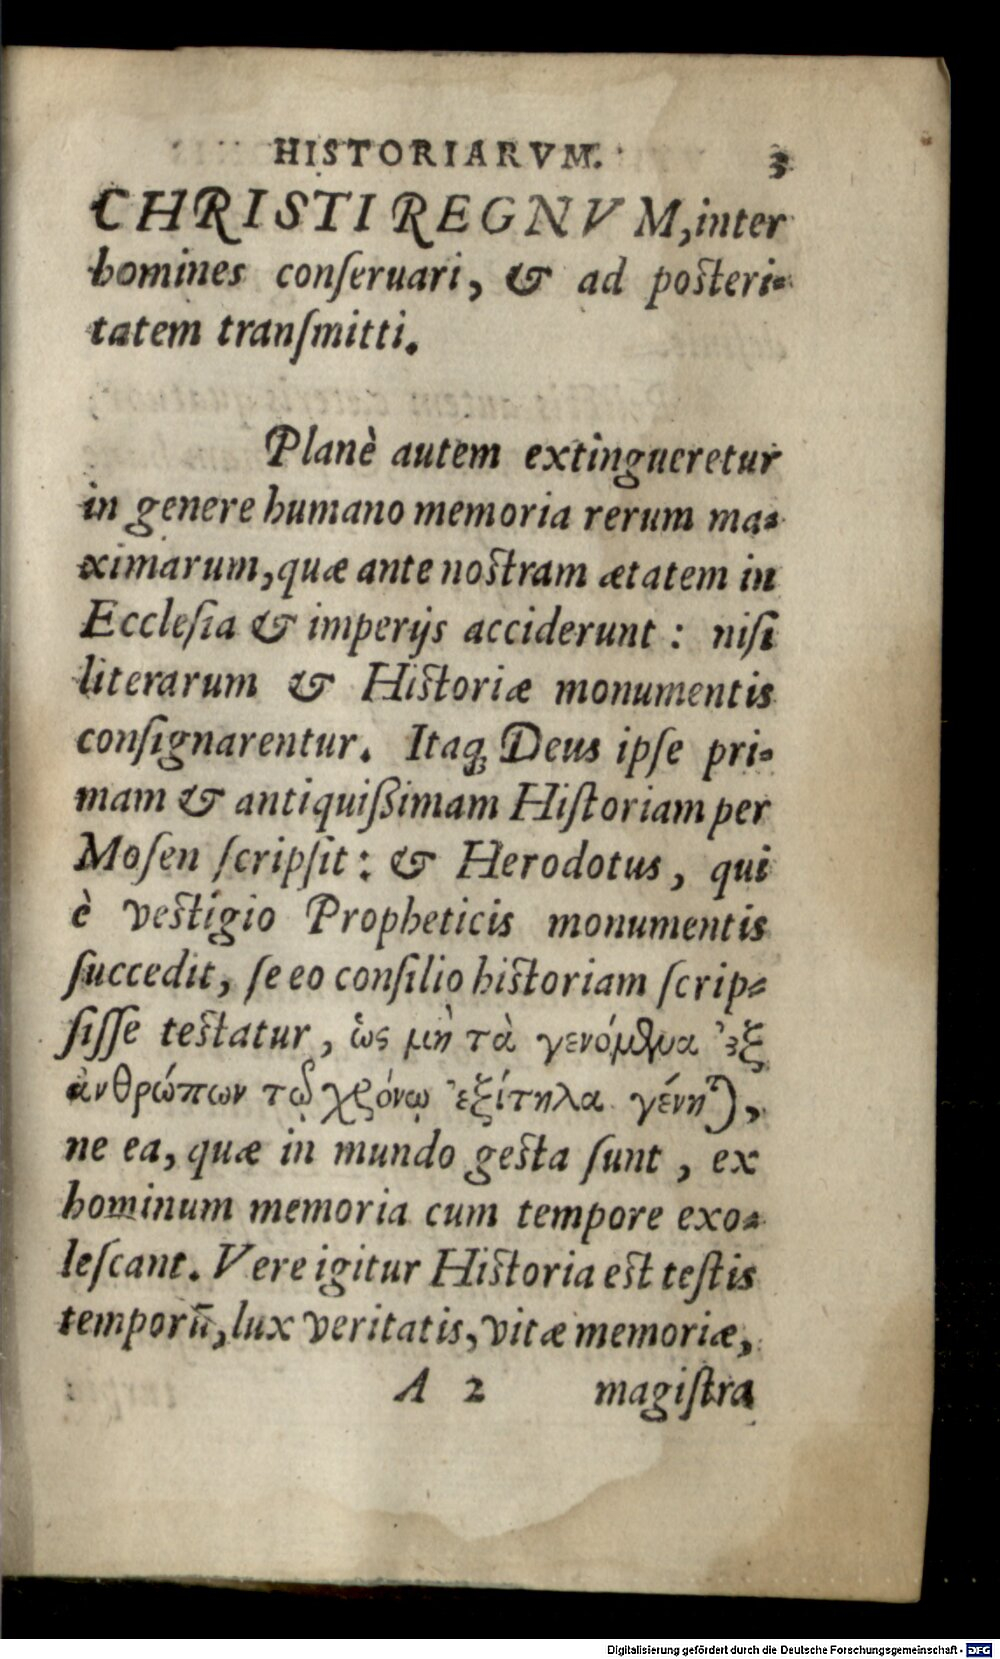 HISTORIARVM. 3
CHRISTI REGNVM, inter
homines conſeruari, & ad poſteri-
tatem tranſmitti.
Planè autem extingueretur
in genere humano memoria rerum ma-
ximarum, quæ ante noſtram ætatem in
Eccleſia & imperijs acciderunt: niſi
literarum & Hiſtoriæ monumentis
conſignarentur. Itaq; Deus ipſe pri-
mam & antiquißimam Hiſtoriam per
Moſen ſcripſit: & Herodotus, qui
è veſtigio Propheticis monumentis
ſuccedit, ſe eo conſilio hiſtoriam ſcrip-
ſiſſe teſtatur, ὡς μὴ τὰ γενόμενα ἐξ
ἀνθρώπων τῷ χρόνῳ ἐξίτηλα γένηται,
ne ea, quæ in mundo geſta ſunt, ex
hominum memoria cum tempore exo-
leſcant. Vere igitur Hiſtoria eſt teſtis
temporū, lux veritatis, vitæ memoriæ,
A 2 magiſtra
Digitalisierung gefördert durch die Deutsche Forschungsgemeinschaft - DFG